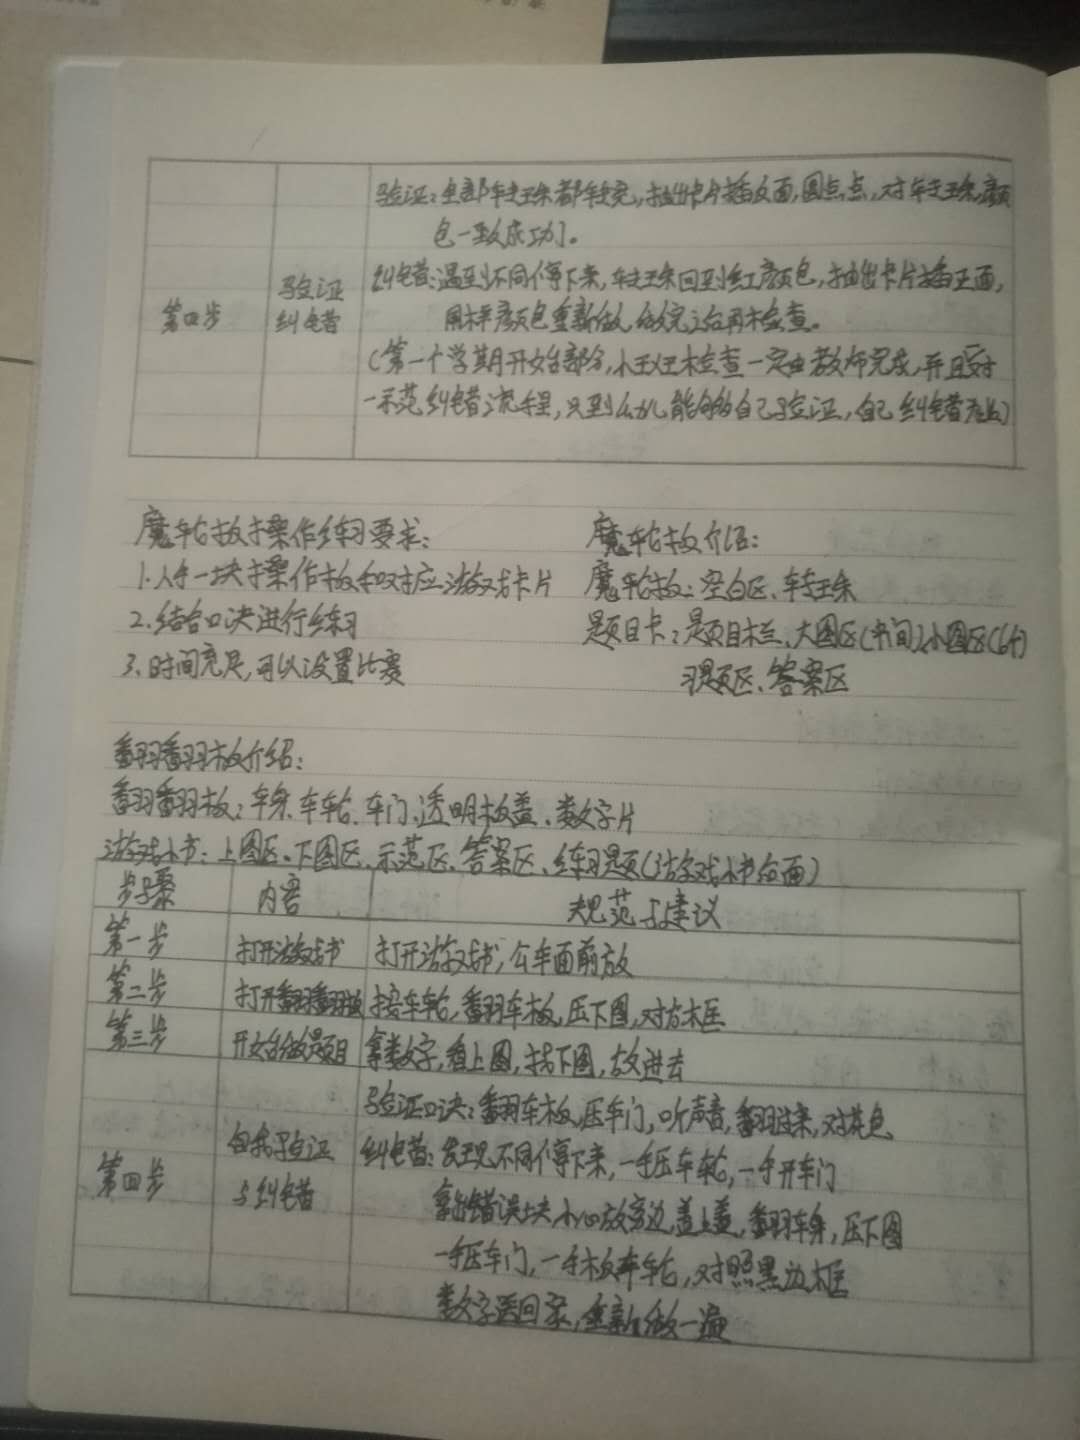 验证：全部转珠都转完，抽出卡片插反面，圆点点，对转珠，颜
色一致成功。
第四步 验证纠错
纠错：遇到不同停下来，转珠回到红颜色，抽出卡片插正面，
用本颜色重新做，做完之后再检查。
（第一个学期开始部分，检查一定由教师完成，并且要
示范纠错流程，只到幼儿能够自己验证，自己纠错为止）
魔轮板操作练习要求：
1.人手一块操作板和对应游戏卡片
2.结合口诀进行练习
3.时间充足，可以设置比赛
魔轮板介绍：
魔轮板：空白区、转珠
题目卡：题目栏、大图区（中间）、小图区（6个）
习题区、答案区
翻翻板介绍：
翻翻板：车身、车轮、车门、透明板盖、数字片
游戏小书：上图区、下图区、示范区、答案区、练习题（游戏小书后面）
步骤 内容 规范与建议
第一步 打开游戏书 打开游戏书，公车面前放
第二步 打开翻翻板 按车轮，翻车板，压下图，对方框
第三步 开始做题目 拿数字，看上图，找下图，放进去
第四步 自我验证与纠错
验证口诀：翻车板，压车门，听声音，翻过来，对花色
纠错：发现不同停下来，一手压车轮，一手开车门
拿出错误块，小心放旁边，盖上盖，翻车身，压下图
一手压车门，一手板车轮，对照黑边框
数字送回家，重新做一遍